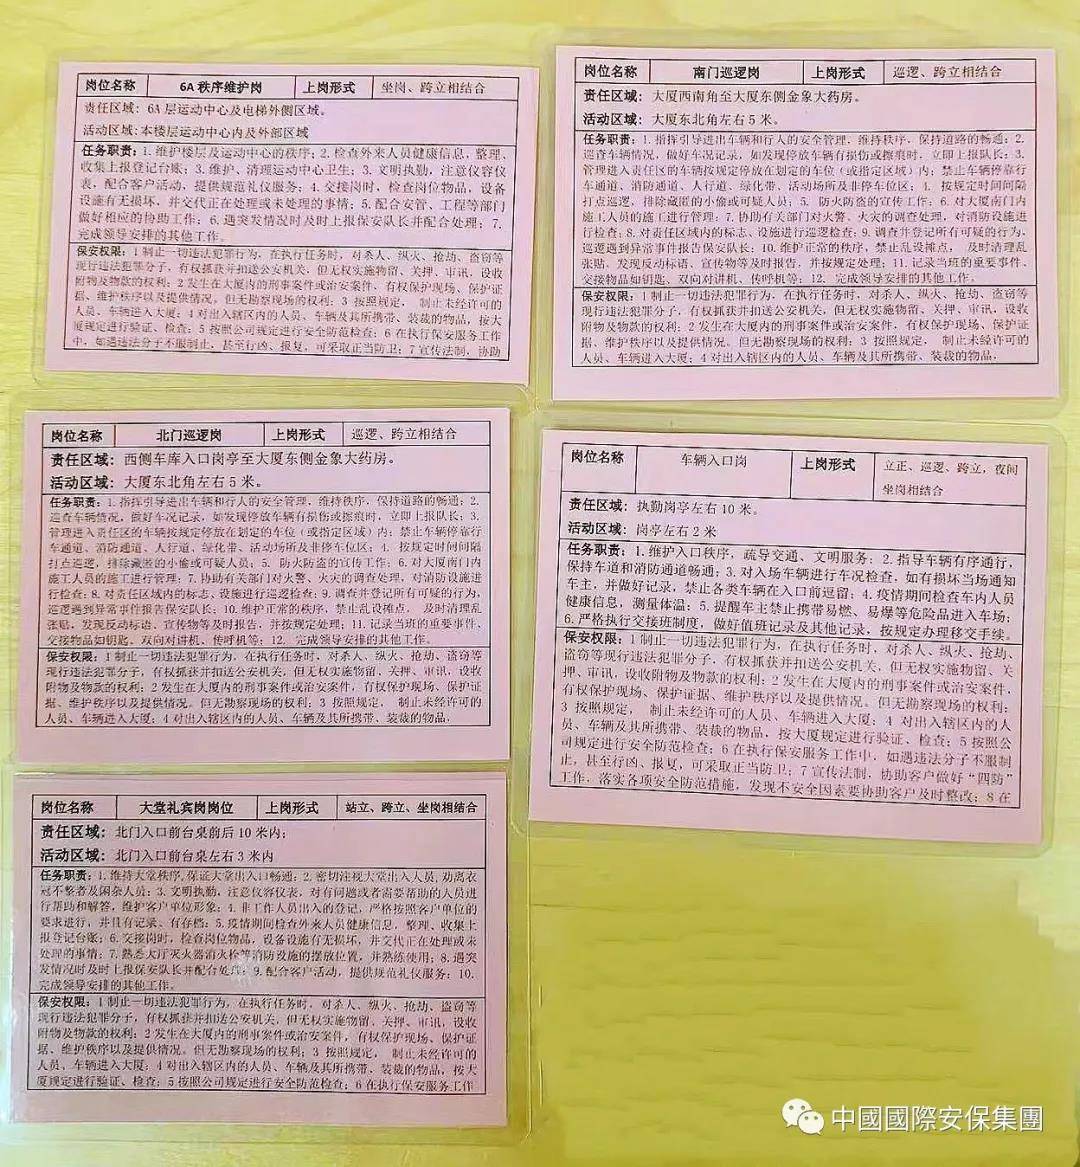 岗位名称 6A 秩序维护岗 上岗形式 坐岗、跨立相结合
责任区域：6A 层运动中心及电梯外侧区域。
活动区域:本楼层运动中心内及外部区域
任务职责：1.维护楼层及运动中心的秩序；2.检查外来人员健康信息，整理、
收集上报登记台账；3.维护、清理运动中心卫生；3.文明执勤，注意仪容仪
表，配合客户活动，提供规范礼仪服务；4.交接岗时，检查岗位物品，设备
设施有无损坏，并交代正在处理或未处理的事情；5.配合安管、工程等部门
做好相应的协助工作；6.遇突发情况时及时上报保安队长并配合处理；7.
完成领导安排的其他工作。
保安权限：1 制止一切违法犯罪行为，在执行任务时，对杀人、纵火、抢劫、盗窃等
现行违法犯罪分子，有权抓获并扣送公安机关，但无权实施物留、关押、审讯，设收
附物及物款的权利；2 发生在大厦内的刑事案件或治安案件，有权保护现场、保护证
据、维护秩序以及提供情况。但无勘察现场的权利；3 按照规定， 制止未经许可的
人员、车辆进入大厦；4 对出入辖区内的人员、车辆及其所携带、装裁的物品，按大
厦规定进行验证、检查；5 按照公司规定进行安全防范检查；6 在执行保安服务工作
中，如遇违法分子不服制止，甚至行凶、报复，可采取正当防卫；7 宣传法制，协助
岗位名称 南门巡逻岗 上岗形式 巡逻、跨立相结合
责任区域：大厦西南角至大厦东侧金象大药房。
活动区域：大厦东北角左右 5 米。
任务职责：1.指挥引导进出车辆和行人的安全管理，维持秩序，保持道路的畅通；2.
巡查车辆情况，做好车况记录，如发现停放车辆有损伤或擦痕时，立即上报队长；3.
管理进入责任区的车辆按规定停放在划定的车位（或指定区域）内；禁止车辆停靠行
车通道、消防通道、人行道、绿化带、活动场所及非停车位区；4. 按规定时间间隔
打点巡逻，排除藏匿的小偷或可疑人员；5. 防火防盗的宣传工作；6.对大厦南门内
施工人员的施工进行管理；7.协助有关部门对火警、火灾的调查处理，对消防设施进
行检查；8.对责任区域内的标志、设施进行巡逻检查；9.调查并登记所有可疑的行为，
巡逻遇到异常事件报告保安队长；10.维护正常的秩序，禁止乱设摊点， 及时清理乱
张贴，发现反动标语、宣传物等及时报告，并按规定处理；11.记录当班的重要事件、
交接物品如钥匙、双向对讲机、传呼机等；12. 完成领导安排的其他工作。
保安权限：1 制止一切违法犯罪行为，在执行任务时，对杀人、纵火、抢劫、盗窃等
现行违法犯罪分子，有权抓获并扣送公安机关，但无权实施物留、关押、审讯，设收
附物及物款的权利；2 发生在大厦内的刑事案件或治安案件，有权保护现场、保护证
据、维护秩序以及提供情况。但无勘察现场的权利；3 按照规定， 制止未经许可的
人员、车辆进入大厦；4 对出入辖区内的人员、车辆及其所携带、装裁的物品，
岗位名称 北门巡逻岗 上岗形式 巡逻、跨立相结合
责任区域：西侧车库入口岗亭至大厦东侧金象大药房。
活动区域：大厦东北角左右 5 米。
任务职责：1.指挥引导进出车辆和行人的安全管理，维持秩序，保持道路的畅通；2.
巡查车辆情况，做好车况记录，如发现停放车辆有损伤或擦痕时，立即上报队长；3.
管理进入责任区的车辆按规定停放在划定的车位（或指定区域）内；禁止车辆停靠行
车通道、消防通道、人行道、绿化带、活动场所及非停车位区；4. 按规定时间间隔
打点巡逻，排除藏匿的小偷或可疑人员；5. 防火防盗的宣传工作；6.对大厦南门内
施工人员的施工进行管理；7.协助有关部门对火警、火灾的调查处理，对消防设施进
行检查；8.对责任区域内的标志、设施进行巡逻检查；9.调查并登记所有可疑的行为，
巡逻遇到异常事件报告保安队长；10.维护正常的秩序，禁止乱设摊点， 及时清理乱
张贴，发现反动标语、宣传物等及时报告，并按规定处理；11.记录当班的重要事件、
交接物品如钥匙、双向对讲机、传呼机等；12. 完成领导安排的其他工作。
保安权限：1 制止一切违法犯罪行为，在执行任务时，对杀人、纵火、抢劫、盗窃等
现行违法犯罪分子，有权抓获并扣送公安机关，但无权实施物留、关押、审讯，设收
附物及物款的权利；2 发生在大厦内的刑事案件或治安案件，有权保护现场、保护证
据、维护秩序以及提供情况。但无勘察现场的权利；3 按照规定， 制止未经许可的
人员、车辆进入大厦；4 对出入辖区内的人员、车辆及其所携带、装裁的物品，
岗位名称 车辆入口岗 上岗形式 立正、巡逻、跨立，夜间
坐岗相结合
责任区域：执勤岗亭左右 10 米。
活动区域：岗亭左右 2 米
任务职责：1.维护入口秩序，疏导交通、文明服务；2.指导车辆有序通行，
保持车道和消防通道畅通；3.对入场车辆进行车况检查，如有损坏当场通知
车主，并做好记录，禁止各类车辆在入口前逗留；4.疫情期间检查车内人员
健康信息，测量体温；5.提醒车主禁止携带易燃、易爆等危险品进入车场；
6.严格执行交接班制度，做好值班记录及其他记录，按规定办理移交手续。
保安权限：1 制止一切违法犯罪行为，在执行任务时，对杀人、纵火、抢劫、
盗窃等现行违法犯罪分子，有权抓获并扣送公安机关，但无权实施物留、关
押、审讯，设收附物及物款的权利；2 发生在大厦内的刑事案件或治安案件，
有权保护现场、保护证据、维护秩序以及提供情况。但无勘察现场的权利；
3 按照规定， 制止未经许可的人员、车辆进入大厦；4 对出入辖区内的人
员、车辆及其所携带、装裁的物品，按大厦规定进行验证、检查；5 按照公
司规定进行安全防范检查；6 在执行保安服务工作中，如遇违法分子不服制
止，甚至行凶、报复，可采取正当防卫；7 宣传法制，协助客户做好“四防”
工作，落实各项安全防范措施，发现不安全因素要协助客户及时整改；8 在
岗位名称 大堂礼宾岗岗位 上岗形式 站立、跨立、坐岗相结合
责任区域：北门入口前台桌前后 10 米内；
活动区域：北门入口前台桌左右 3 米内
任务职责：1.维持大堂秩序,保证大堂出入口畅通；2.密切注视大堂出入人员,劝离衣
冠不整者及闲杂人员；3.文明执勤，注意仪容仪表，对有问题或者需要帮助的人员进
行帮助和解答，维护客户单位形象；4.非工作人员出入的登记，严格按照客户单位的
要求进行，并且有记录、有存档；5.疫情期间检查外来人员健康信息，整理、收集上
报登记台账；6.交接岗时，检查岗位物品，设备设施有无损坏，并交代正在处理或未
处理的事情；7.熟悉大厅灭火器消火栓等消防设施的摆放位置，并熟练使用；8.遇突
发情况时及时上报保安队长并配合处理；9.配合客户活动，提供规范礼仪服务；10.
完成领导安排的其他工作。
保安权限：1 制止一切违法犯罪行为，在执行任务时，对杀人、纵火、抢劫、盗窃等
现行违法犯罪分子，有权抓获并扣送公安机关，但无权实施物留、关押、审讯，设收
附物及物款的权利；2 发生在大厦内的刑事案件或治安案件，有权保护现场、保护证
据、维护秩序以及提供情况。但无勘察现场的权利；3 按照规定， 制止未经许可的
人员、车辆进入大厦；4 对出入辖区内的人员、车辆及其所携带、装裁的物品，按大
厦规定进行验证、检查；5 按照公司规定进行安全防范检查；6 在执行保安服务工作
中國國際安保集團